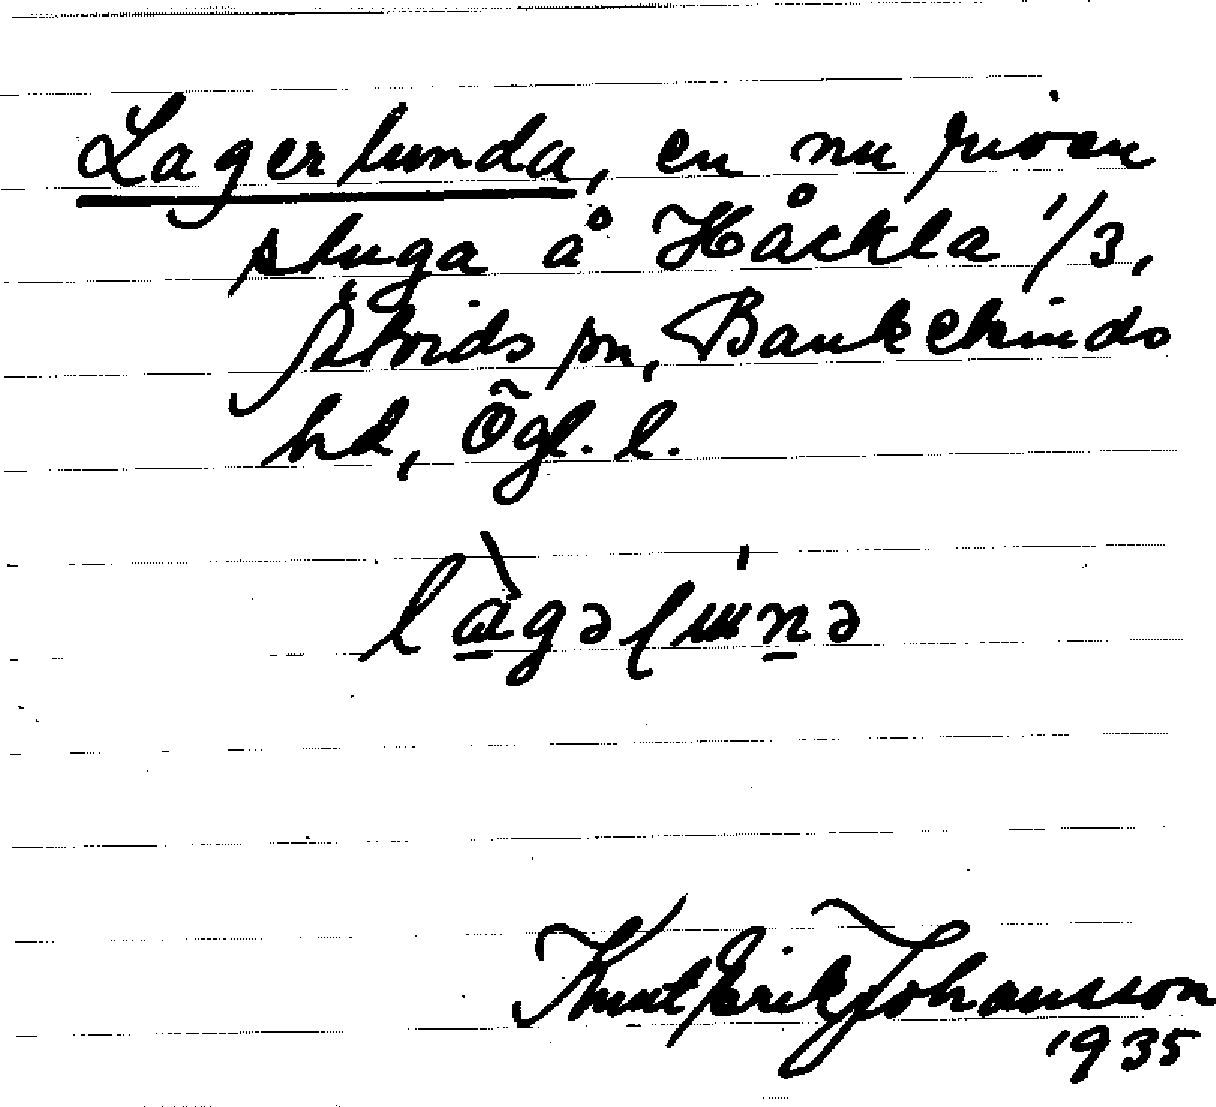 Lagerlunda, en nu riven
stuga å Håckla 1/3,
Skvids sn, Bankekinds
hd, Ögl. l.
Knut Erik Johansson
1935